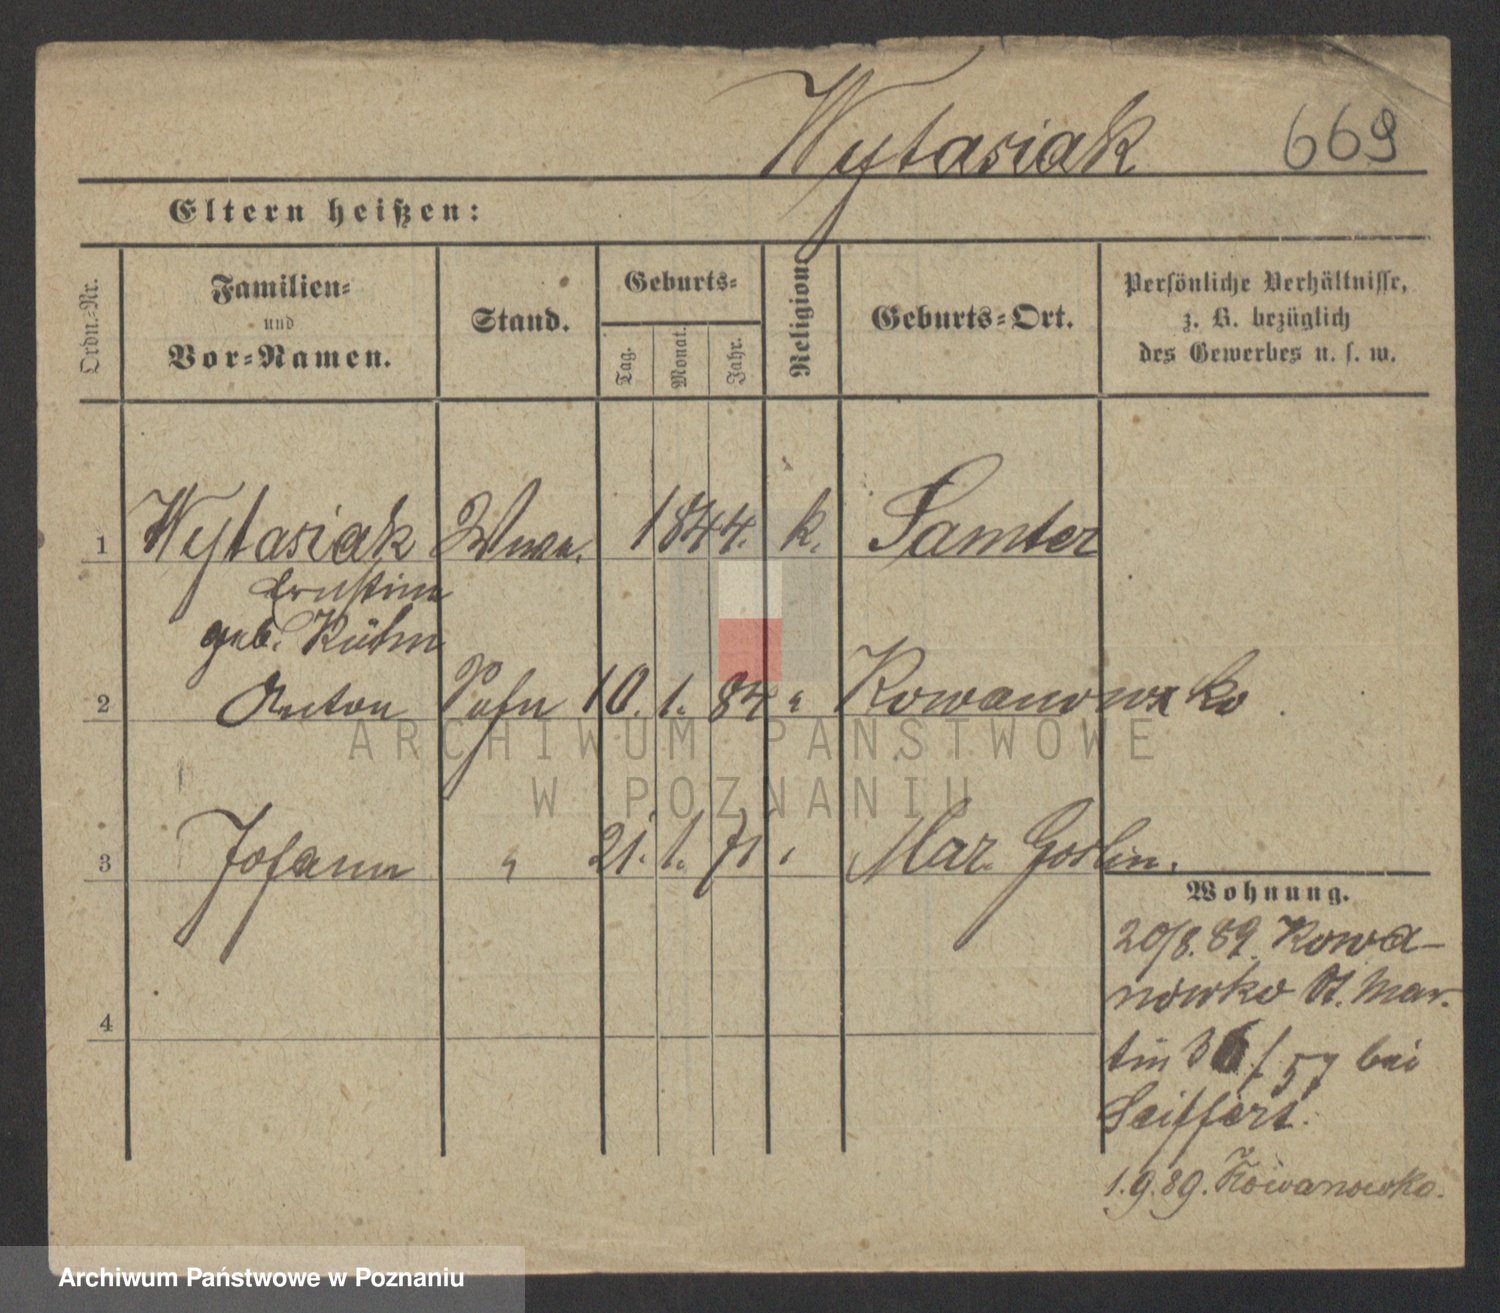 Wytasiak 669
Eltern heißen:
Ordn.-Nr.
Familien-
und
Vor-Namen.
Stand.
Geburts-
Tag.
Monat.
Jahr.
Religion
Geburts-Ort.
Persönliche Verhältnisse,
z. B. bezüglich
des Gewerbes u. s. w.
1 Wytasiak Wwe. 1844. k. Samter
Ernstine
geb. Kühn
2 Anton Sohn 10. 1. 84 " Kowanowko
ARCHIWUM PAŃSTWOWE
W POZNANIU
3 Johann " 21. 1. 71 " Mur. Goslin.
Wohnung.
20/8. 89. Kowa-
nowko St. Mar-
tin 36/57 bei
Seiffert.
4
1.9.89. Kowanowko.
Archiwum Państwowe w Poznaniu